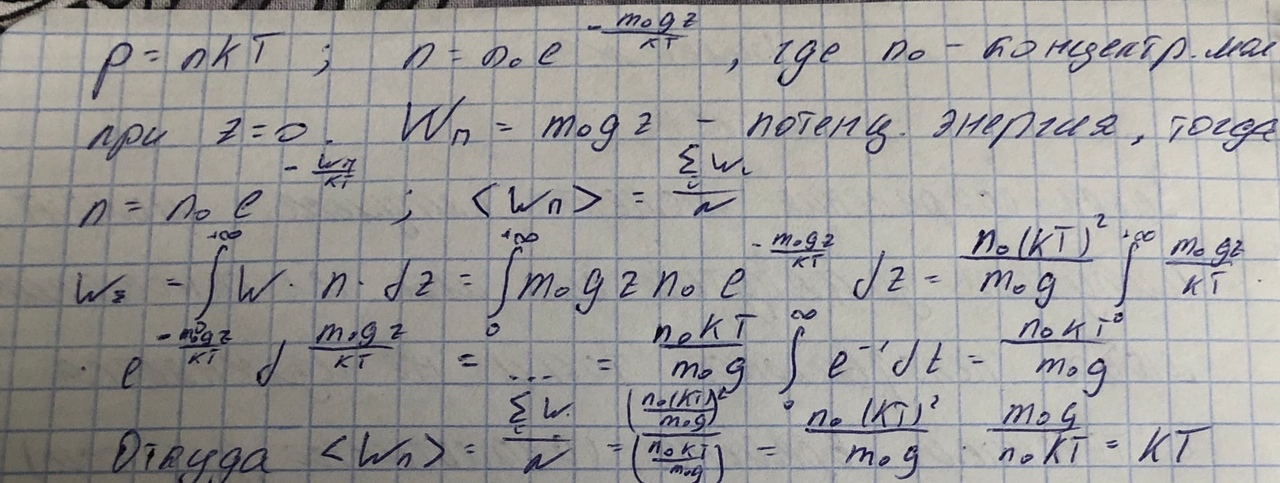 p = nkT ; n = n₀ e^(-m₀gz/kT) , где n₀ - концентр. мол
при z=0. Wп = m₀gz - потенц. энергия, тогда
n = n₀ e^(-Wп/kT) ; <Wп> = ∑ᵢ Wᵢ / N
W_Σ = ∫₀^(+∞) W · n · dz = ∫₀^(+∞) m₀gz n₀ e^(-m₀gz/kT) dz = n₀(kT)²/m₀g ∫₀^(+∞) m₀gz/kT ·
· e^(-m₀gz/kT) d m₀gz/kT = ... = n₀kT/m₀g ∫₀^∞ e^(-t) dt = n₀kT/m₀g
Откуда <Wп> = ∑ᵢ Wᵢ / N = (n₀(kT)²/m₀g) / (n₀kT/m₀g) = n₀(kT)²/m₀g · m₀g/n₀kT = kT